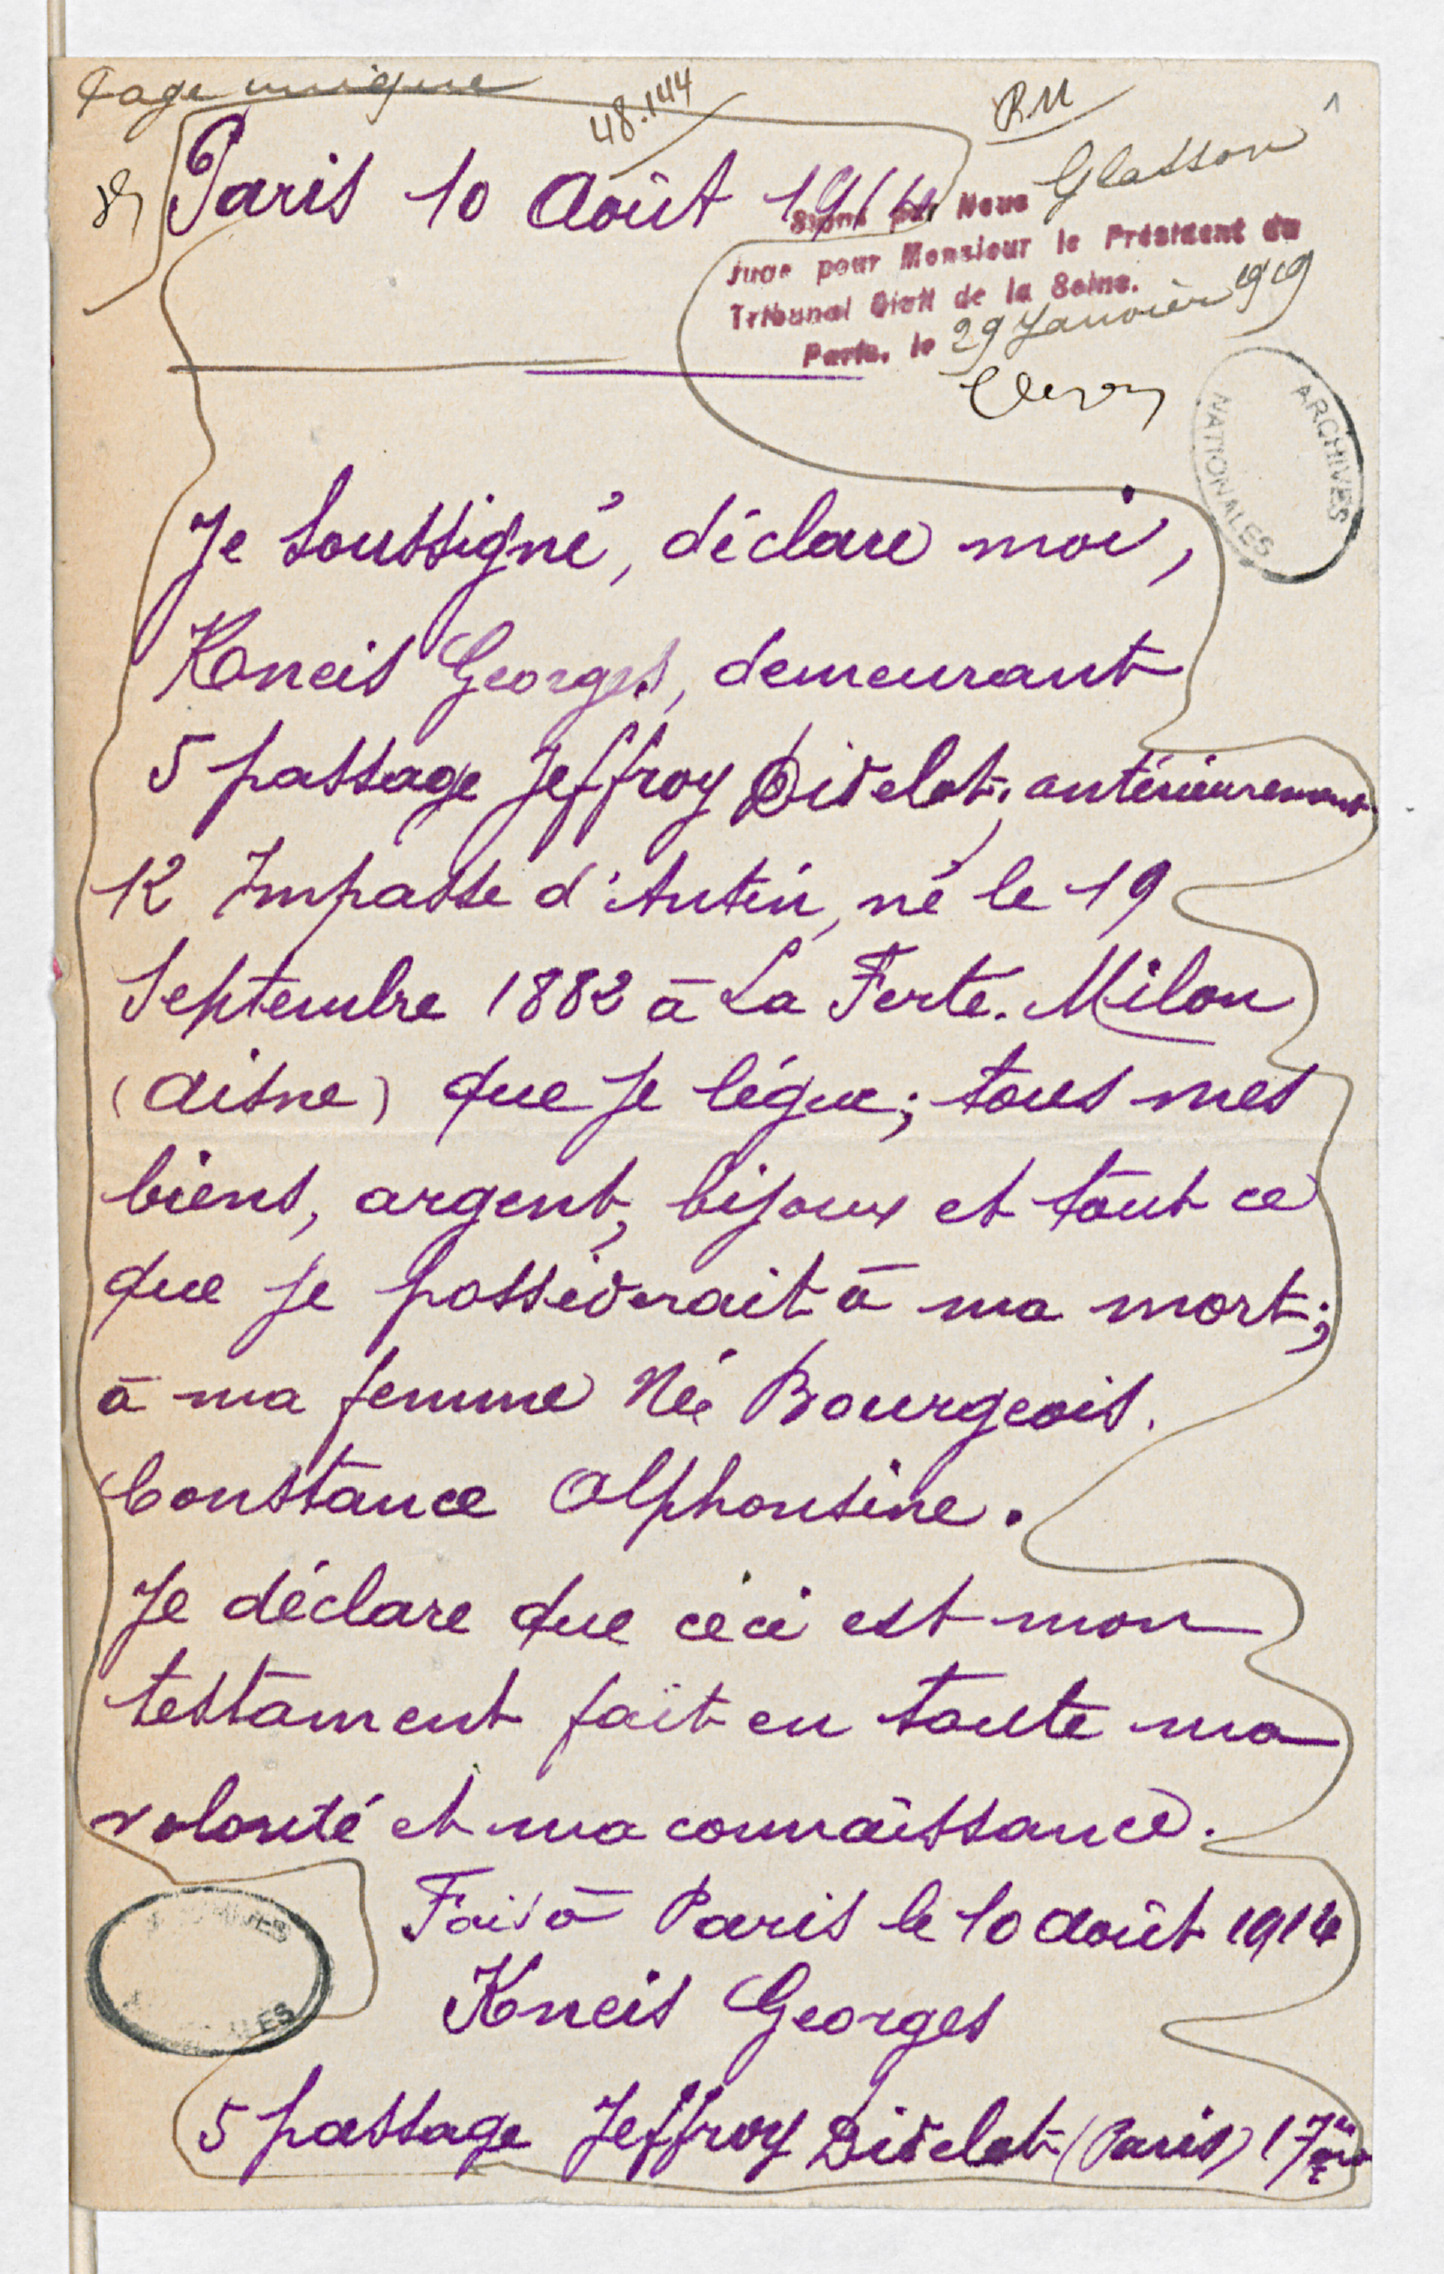 Page unique
48.144
RM
1
Paris 10 Août 1914
Signé par Nous Glasson
Juge pour Monsieur le Président du
Tribunal Civil de la Seine.
Paris, le 29 Janvier 1919
ARCHIVES NATIONALES
Je soussigné, déclare moi,
Kneis Georges, demeurant
5 passage Jeffroy Didelot, antérieurement
12 Impasse d'Antin, né le 19
Septembre 1882 à La Ferte. Milon
(Aisne) que je lègue; tous mes
biens, argent, bijoux et tout ce
que je possèderait à ma mort;
à ma femme Née Bourgeois.
Constance Alphonsine.
Je déclare que ceci est mon
testament fait en toute ma
volonté et ma connaissance.
Fait à Paris le 10 août 1914
Kneis Georges
5 passage Jeffroy Didelot (Paris) 17